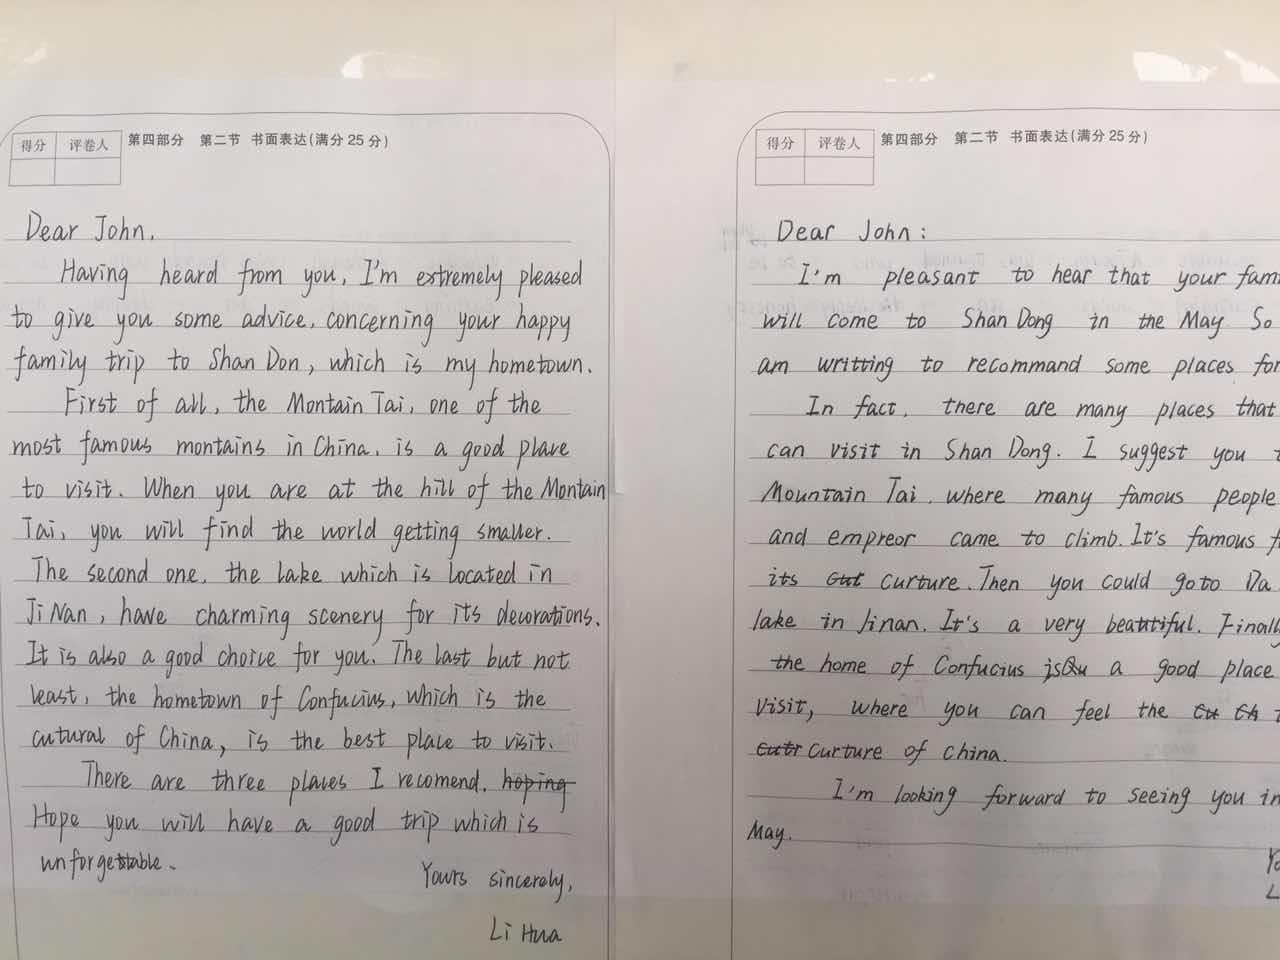 得分 评卷人 第四部分 第二节 书面表达(满分25分)
Dear John,
Having heard from you, I'm extremely pleased
to give you some advice, concerning your happy
family trip to Shan Don, which is my hometown.
First of all, the Montain Tai, one of the
most famous montains in China, is a good place
to visit. When you are at the hill of the Montain
Tai, you will find the world getting smaller.
The second one, the lake which is located in
Ji Nan, have charming scenery for its decorations.
It is also a good choice for you. The last but not
least, the hometown of Confucius, which is the
cutural of China, is the best place to visit.
There are three places I recomend. hoping
Hope you will have a good trip which is
unforgettable.
Yours sincerely,
Li Hua
得分 评卷人 第四部分 第二节 书面表达(满分25分)
Dear John:
I'm pleasant to hear that your fam
will come to Shan Dong in the May. So
am writting to recommand some places for
In fact, there are many places that
can visit in Shan Dong. I suggest you
Mountain Tai, where many famous people
and empreor came to climb. It's famous f
its curture. Then you could go to Da
lake in Jinan. It's a very beautiful. Finally
the home of Confucius is Qu a good place
visit, where you can feel the
curture of china.
I'm looking forward to seeing you in
May.
Yo
L